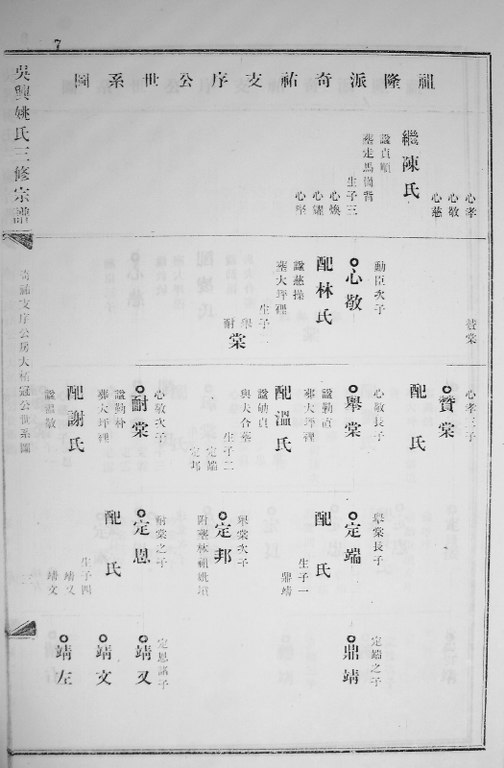 7
祖隆派奇祐支序公世系圖
吳興姚氏三修宗譜
奇祐支序公房大楨冠公世系圖
心孝
心敬
心慈
繼陳氏
諡貞順
葬走馬崗背
生子三
心煥
心鑵
心堅
贊棠
勳臣次子
心敬
配林氏
諡慈操
葬大坪裡
生子二
舉棠
耐棠
心孝三子
贊棠
配 氏
心敬長子
舉棠
諡勤直
葬大坪裡
配溫氏
諡貞
與夫合葬
生子二
定端
定邦
心敬次子
耐棠
諡勤朴
葬大坪裡
配謝氏
舉棠長子
定端
配 氏
生子一
鼎靖
舉棠次子
定邦
耐棠之子
定恩
配 氏
生子四
靖又
靖文
定端之子
鼎靖
定恩諸子
靖又
靖文
靖左